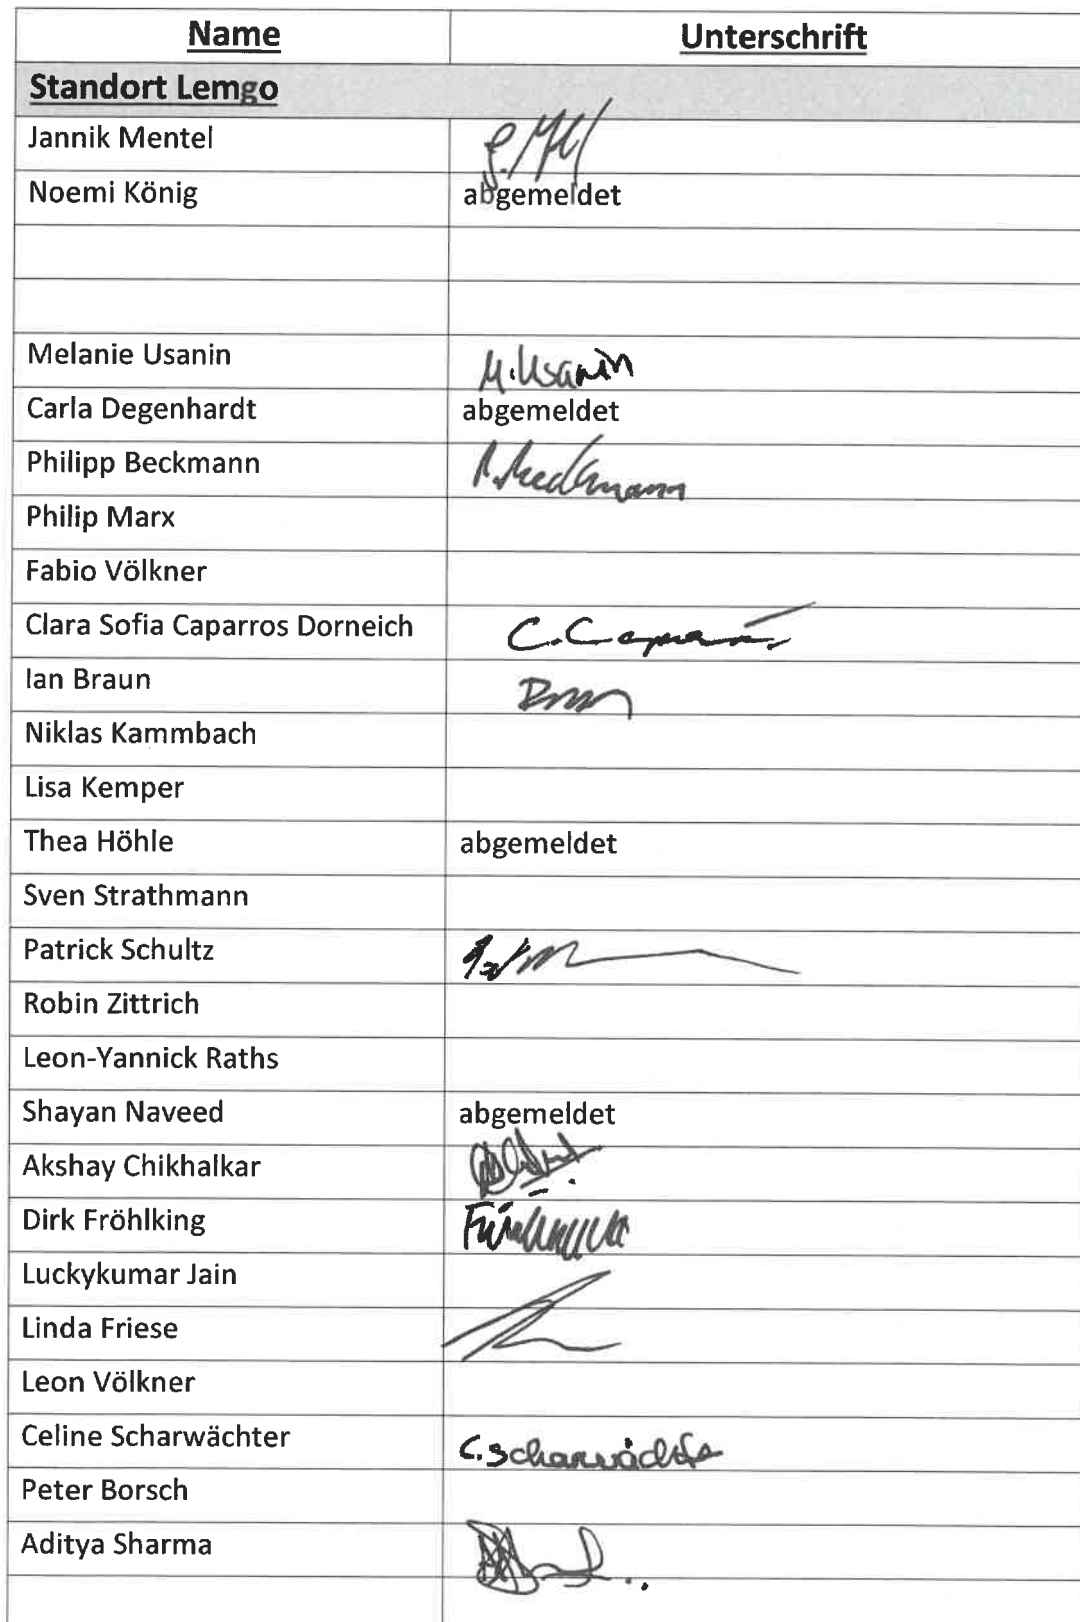 Name Unterschrift
Standort Lemgo
Jannik Mentel
Noemi König abgemeldet
Melanie Usanin M. Usanin
Carla Degenhardt abgemeldet
Philipp Beckmann P. Beckmann
Philip Marx
Fabio Völkner
Clara Sofia Caparros Dorneich
Ian Braun
Niklas Kammbach
Lisa Kemper
Thea Höhle abgemeldet
Sven Strathmann
Patrick Schultz
Robin Zittrich
Leon-Yannick Raths
Shayan Naveed abgemeldet
Akshay Chikhalkar
Dirk Fröhlking
Luckykumar Jain
Linda Friese
Leon Völkner
Celine Scharwächter C. Scharwächter
Peter Borsch
Aditya Sharma